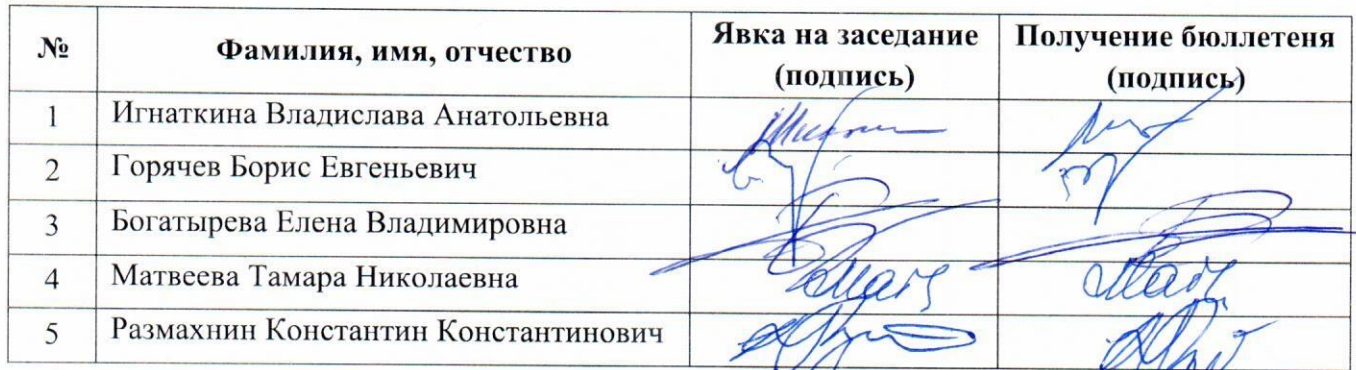 № Фамилия, имя, отчество Явка на заседание (подпись) Получение бюллетеня (подпись)
1 Игнаткина Владислава Анатольевна
2 Горячев Борис Евгеньевич
3 Богатырева Елена Владимировна
4 Матвеева Тамара Николаевна
5 Размахнин Константин Константинович